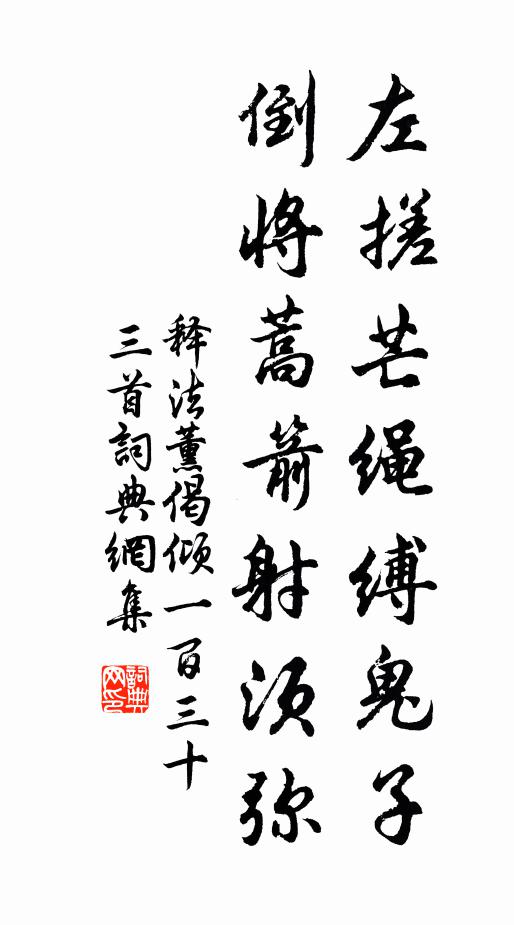 左搓芒绳缚鬼子
倒将蒿箭射须弥
释法薰偈倾一百三十
三首詞典網集
詞典
网印